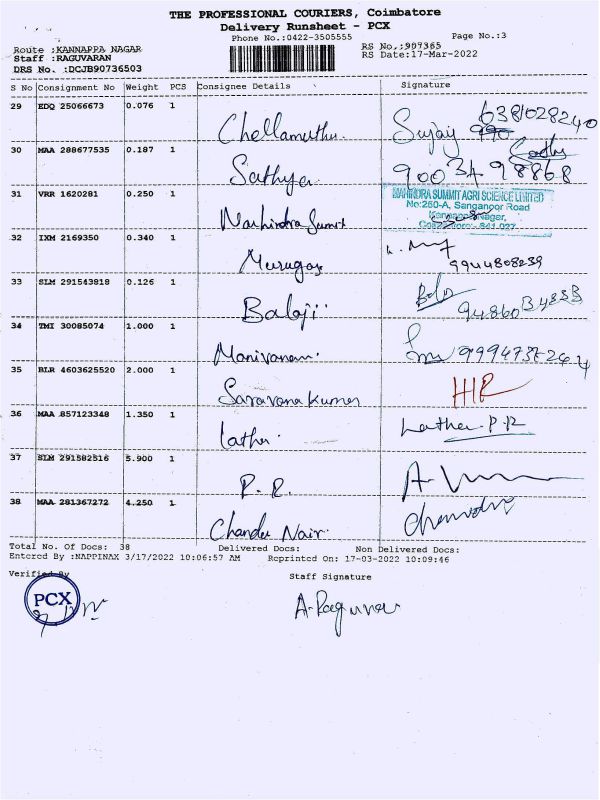 THE PROFESSIONAL COURIERS, Coimbatore
Delivery Runsheet - PCX
Phone No.:0422-3505555
Page No.:3
Route :KANNAPPA NAGAR
Staff :RAGUVARAN
DRS No. :DCJB90736503
RS No.:907365
RS Date:17-Mar-2022
S No Consignment No Weight PCS Consignee Details Signature
29 EDQ 25066673 0.076 1 Chellamuthu. Sujay 6381028240
30 MAA 288677535 0.187 1 Sathya 90034 98868
31 VRR 1620281 0.250 1 Mahindra Summit
MAHINDRA SUMMIT AGRI SCIENCE LIMITED
No:250-A, Sanganoor Road
Kannappa Nagar,
Coimbatore - 641 027
32 IXM 2169350 0.340 1 Murugan 9944808239
33 SLM 291543818 0.126 1 Balaji
34 TMI 30085074 1.000 1 Manivanan.
35 BLR 4603625520 2.000 1 Saravana Kumar
36 MAA 857123348 1.350 1 Latha. Latha P.R
37 SLM 291582516 5.900 1 R. R.
38 MAA 281367272 4.250 1 Chandu Nair.
Total No. Of Docs: 38 Delivered Docs: Non Delivered Docs:
Entered By :NAPPINAX 3/17/2022 10:06:57 AM Reprinted On: 17-03-2022 10:09:46
Verified By Staff Signature
PCX